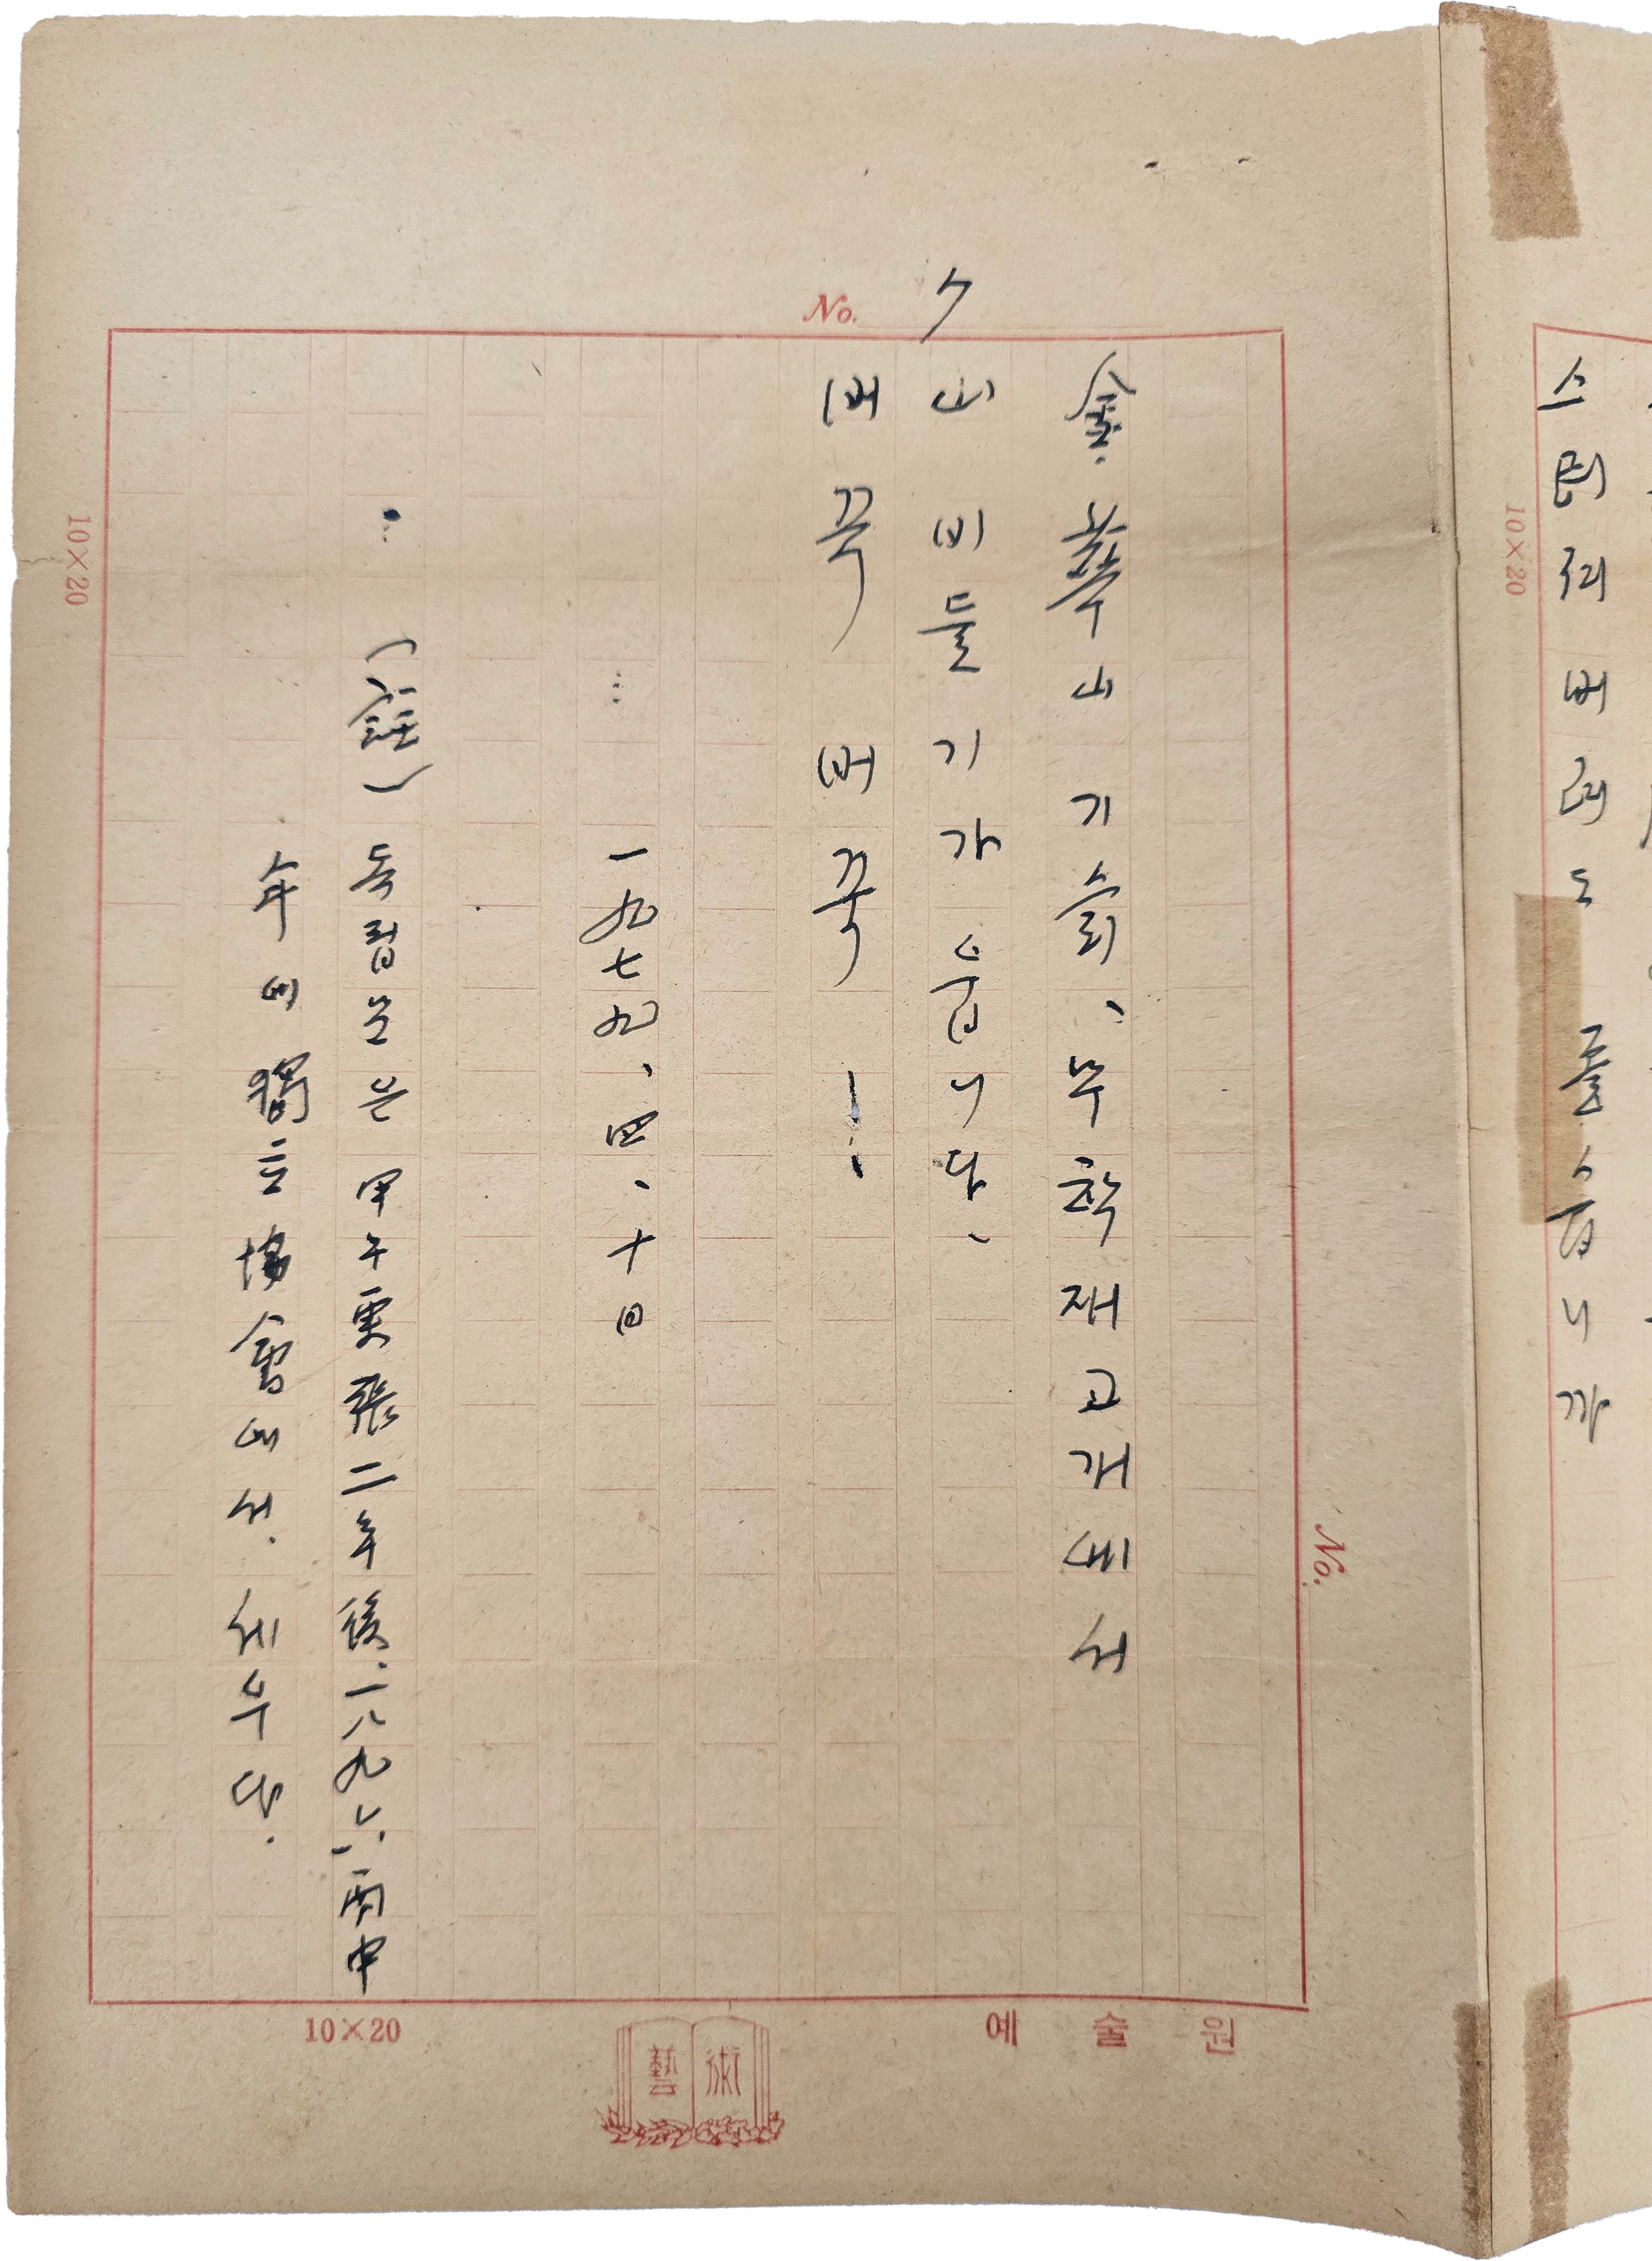 버려도 좋습니까
No. 7
金華山 기슭、무학재고개에서
山비둘기가 웁니다、
버꾹 버꾹 !
一九七九、四、十日
(註) 독립문은 甲午更張二年後、一八九六、丙申
年에 獨立協會에서. 세우다.
No.
10×20
10×20
10×20
藝術
예술원